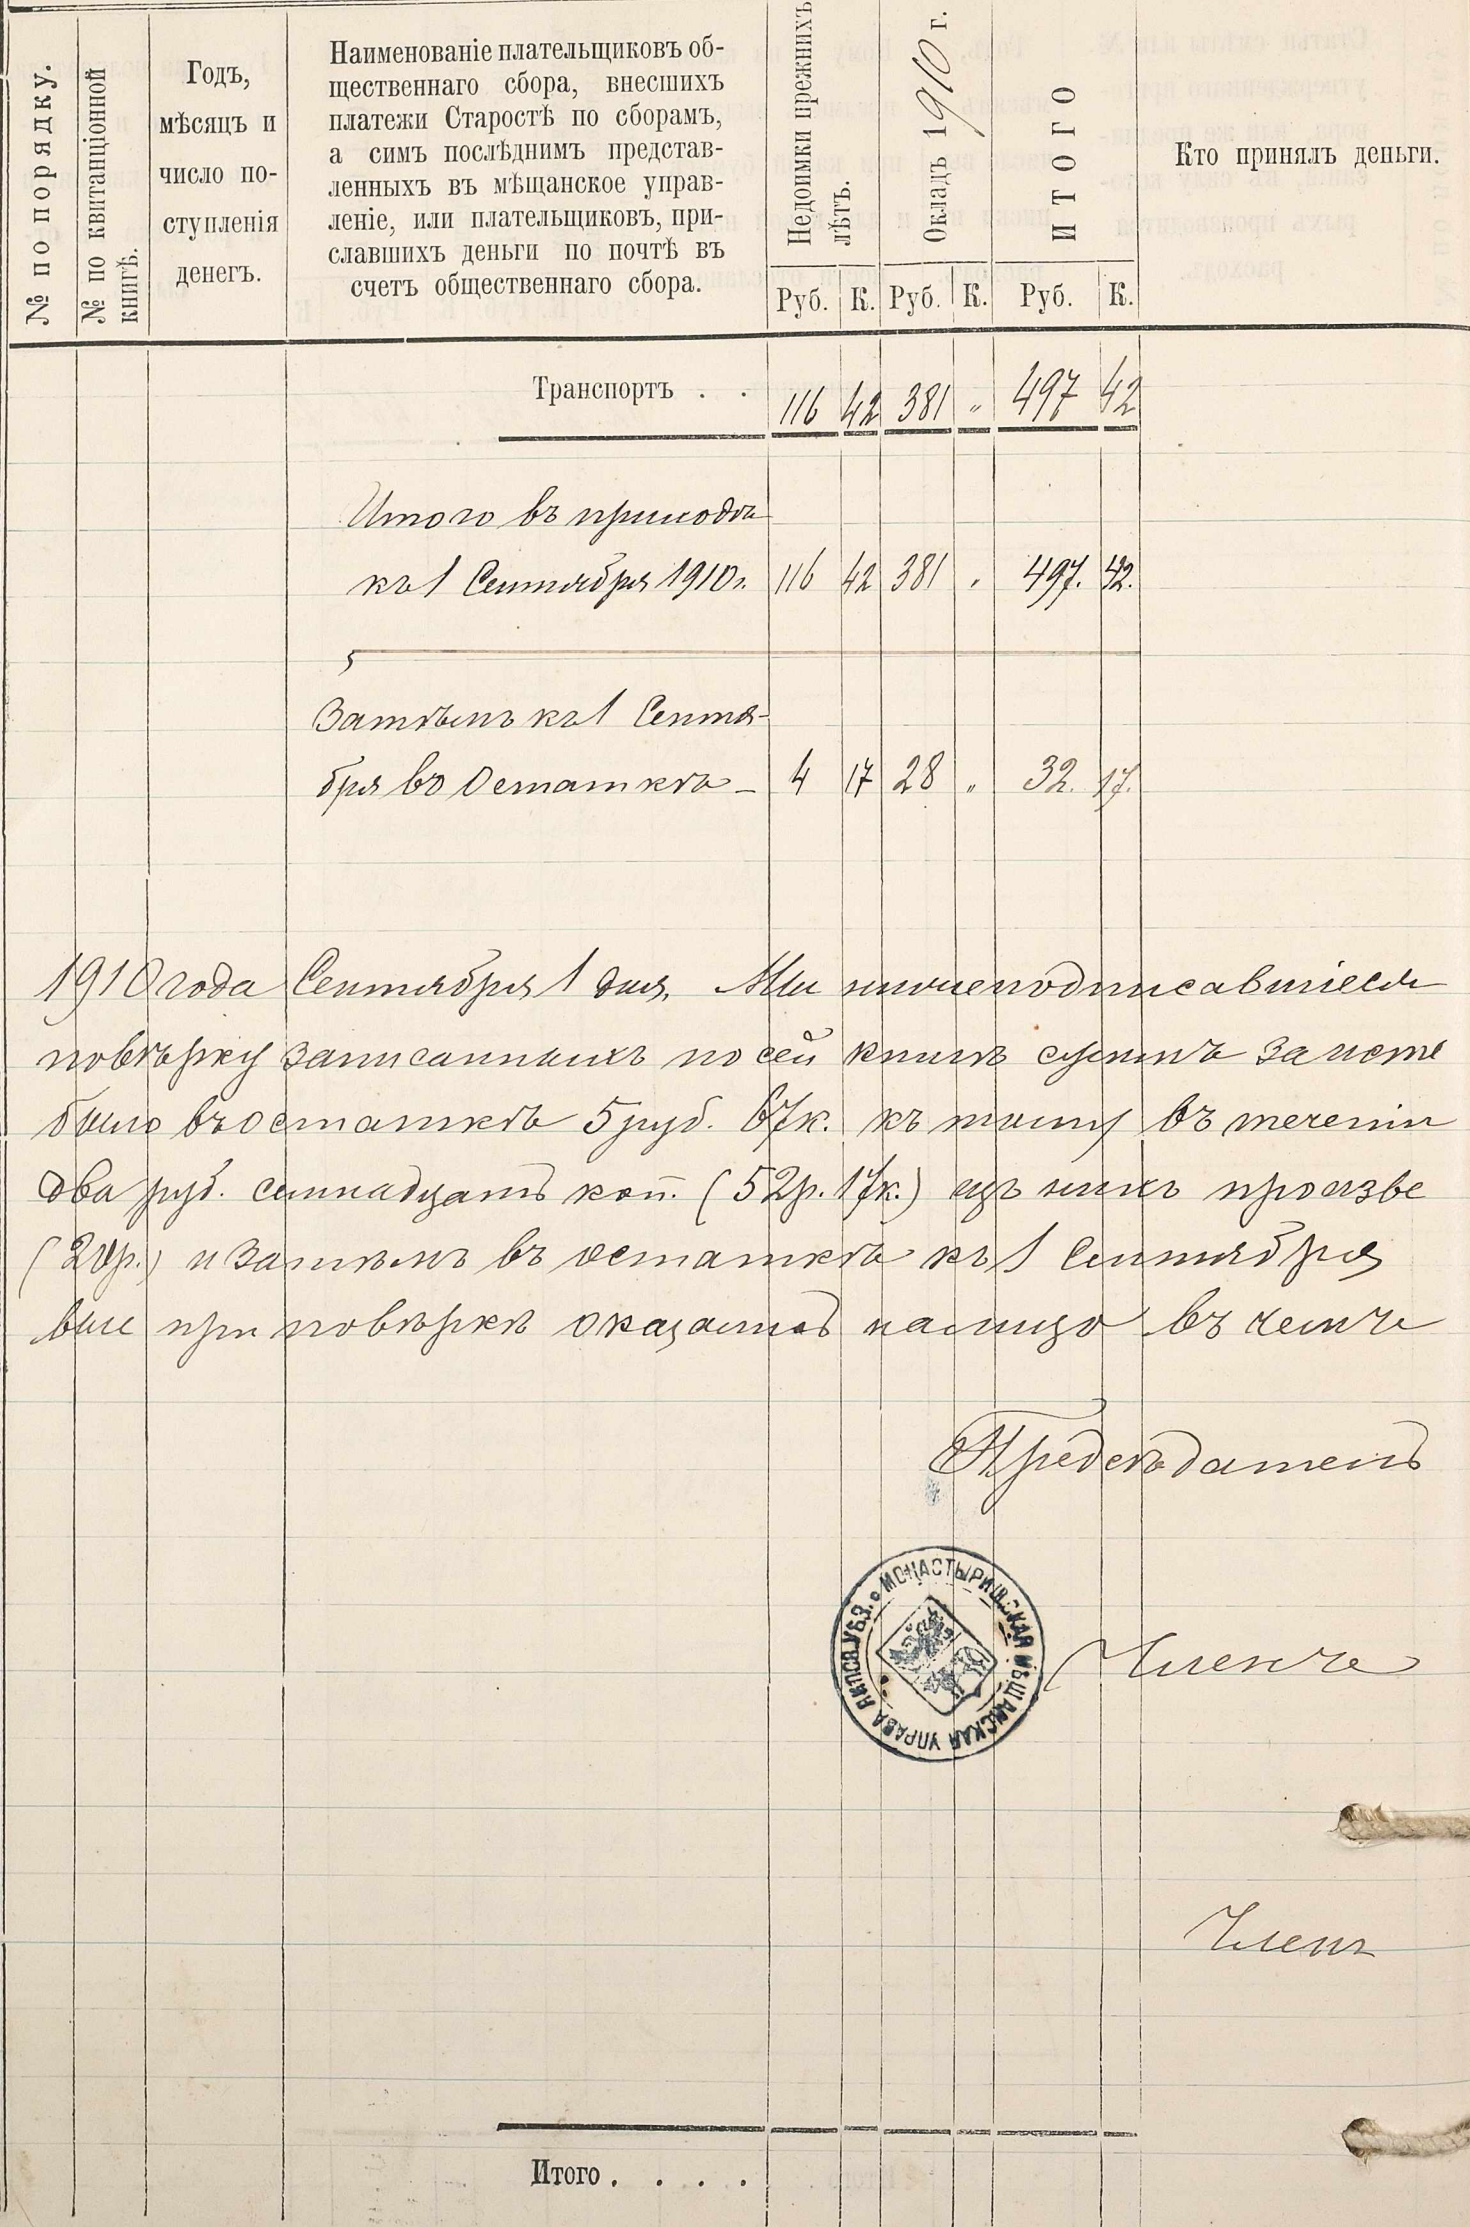 № по порядку.
№ по квитанціонной
книгѣ.
Годъ,
мѣсяцъ и
число по-
ступленія
денегъ.
Наименованіе плательщиковъ об-
щественнаго сбора, внесшихъ
платежи Старостѣ по сборамъ,
а симъ послѣднимъ представ-
ленныхъ въ мѣщанское управ-
леніе, или плательщиковъ, при-
славшихъ деньги по почтѣ въ
счетъ общественнаго сбора.
Недоимки прежнихъ
лѣтъ.
Окладъ 1910 г.
ИТОГО
Кто принялъ деньги.
Руб. К. Руб. К. Руб. К.
Транспортъ . . 116 42 381 „ 497 42
Итого въ приходѣ
къ 1 Сентября 1910 г. 116 42 381 „ 497. 42.
Затѣмъ къ 1 Сентя-
бря въ Остаткѣ — 4 17 28 „ 32. 17.
1910 года Сентября 1 дня. Мы нижеподписавшіеся
повѣрку записанныхъ по сей книгѣ суммъ за
было въ остаткѣ 5 руб. 67 к. къ тому въ теченіи
два руб. семнадцать коп. (52 р. 17 к.) изъ нихъ произве
(20 р.) и затѣмъ въ остаткѣ къ 1 Сентября
вые при повѣркѣ оказались налицо въ чемъ
Предсѣдатель
МОНАСТЫРИЩСКАЯ МѢЩАНСКАЯ УПРАВА ЛИПОВ. УѢЗ.
Члены
Членъ
Итого . . . .